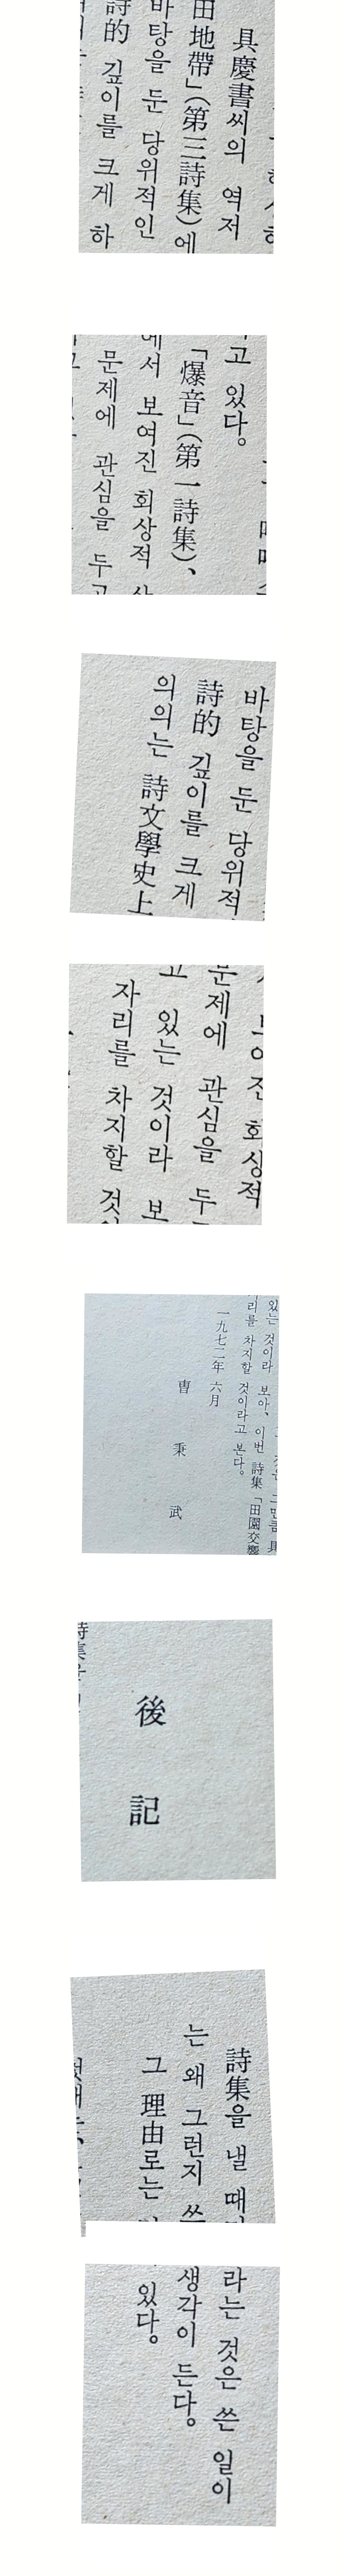 具慶書씨의 역저
田地帶」(第三詩集)에
바탕을 둔 당위적인
詩的 깊이를 크게 하
고 있다。
「爆音」(第一詩集)、
에서 보여진 회상적
문제에 관심을 두고
바탕을 둔 당위적
詩的 깊이를 크게
의의는 詩文學史上
회상적
문제에 관심을 두
고 있는 것이라 보
자리를 차지할 것이
있는 것이라 보아、
리를 차지할 것이라고 본다。
이번 詩集「田園交響
一九七二年 六月
曺秉武
後記
詩集을 낼 때
는 왜 그런지 쓰
그 理由로는
라는 것은 쓴 일이
생각이 든다。
있다。